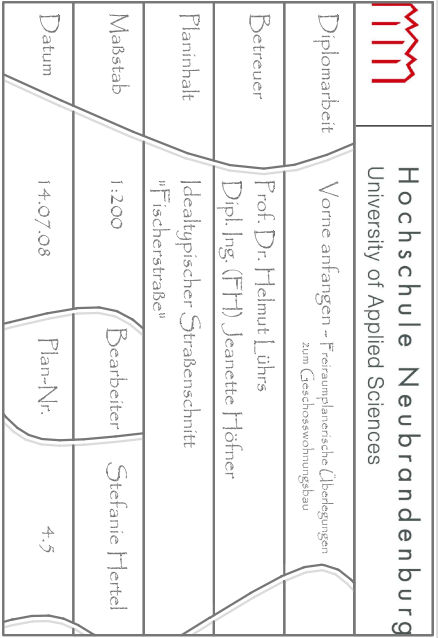 Hochschule Neubrandenburg
University of Applied Sciences
Diplomarbeit
Vorne anfangen - Freiraumplanerische Überlegungen
zum Geschosswohnungsbau
Betreuer
Prof. Dr. Helmut Lührs
Dipl. Ing. (FH) Jeanette Höfner
Planinhalt
Idealtypischer Straßenschnitt
"Fischerstraße"
Maßstab
1:200
Bearbeiter
Stefanie Hertel
Datum
14.07.08
Plan-Nr.
4.5